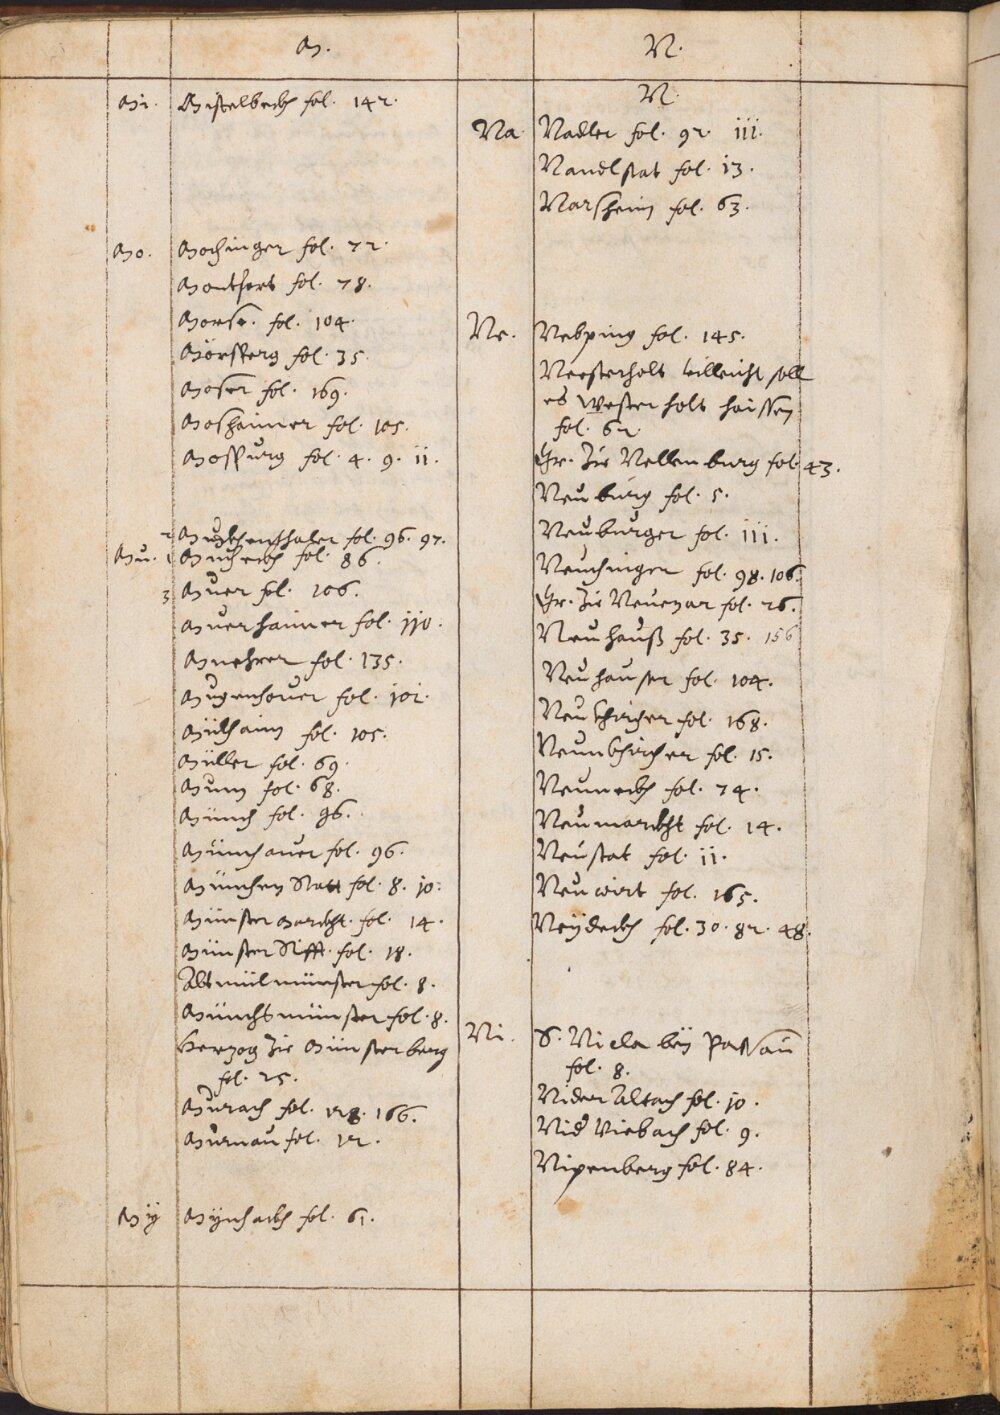 M.
Mi. Mistelbeckh fol. 142.
Mo. Mochinger fol. 72.
Montfort fol. 78.
Morse. fol. 104.
Mörsperg fol. 35.
Moser fol. 169.
Moshaimer fol. 105.
Mospurg fol. 4. 9. ii.
2 fol. 96. 97.
Mu. 1 Mucheckh fol. 86.
3 Muer fol. 106.
Muerhaimer fol. jj0.
Muehrer fol. 135.
Mugenhover fol. j0j.
Mülhaim fol. 105.
Müller fol. 69.
Mum fol. 68.
Münch fol. 96.
Münchauer fol. 96.
München Statt fol. 8. j0.
Münster Marckht. fol. 14.
Münster Stifft. fol. 18.
Altmülmünster fol. 8.
Münchsmünster fol. 8.
Herzog zu Münsterberg
fol. 25.
Murach fol. 128. 166.
Murnau fol. 12.
Mÿ Mÿnchackh fol. 61.
N.
N.
Na. Nadler fol. 92. iii.
Nandlstat fol. i3.
Narsheim fol. 63.
Ne. Nebping fol. 145.
Neesterholt villeicht soll
es Westerholt haissen
fol. 62.
Gr. zu Nellenburg fol. 43.
Neuburg fol. 5.
Neuburger fol. iii.
Neuchinger fol. 98. 106.
Gr. zu Neuenar fol. 26.
Neuhauß fol. 35. 156
Neuhauser fol. 104.
Neukhircher fol. 168.
Neunkhircher fol. 15.
Neuneckh fol. 74.
Neumarckht fol. 14.
Neustat fol. ii.
Neuwirt fol. 165.
Neÿdeckh fol. 30. 82. 48.
Ni. S. Nicla beÿ Passau
fol. 8.
Nider Altach fol. j0.
Nid Viebach fol. 9.
Nipenberg fol. 84.